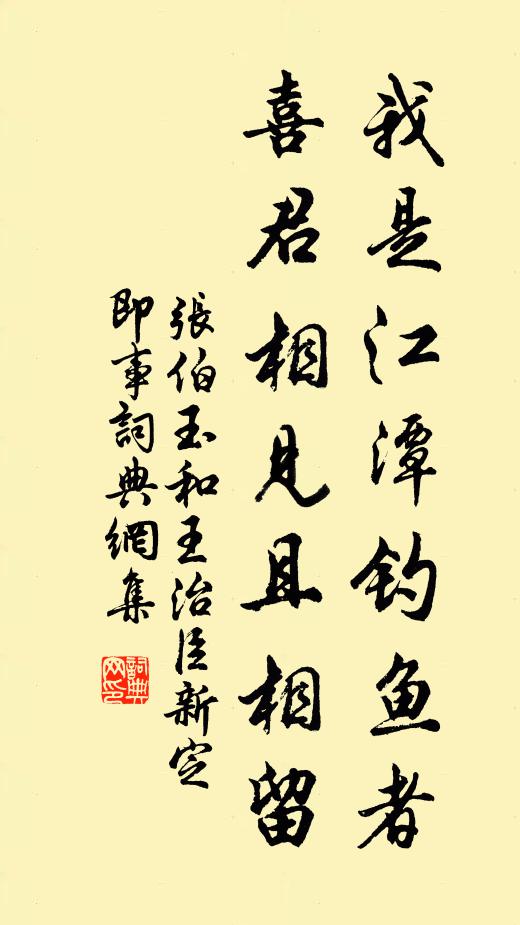 我是江潭钓鱼者
喜君相见且相留
張伯玉和王治臣新定
即事詞典網集
詞典網印